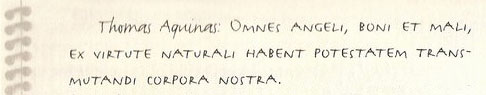 Thomas Aquinas: OMNES ANGELI, BONI ET MALI,
EX VIRTUTE NATURALI HABENT POTESTATEM TRANS-
MUTANDI CORPORA NOSTRA.